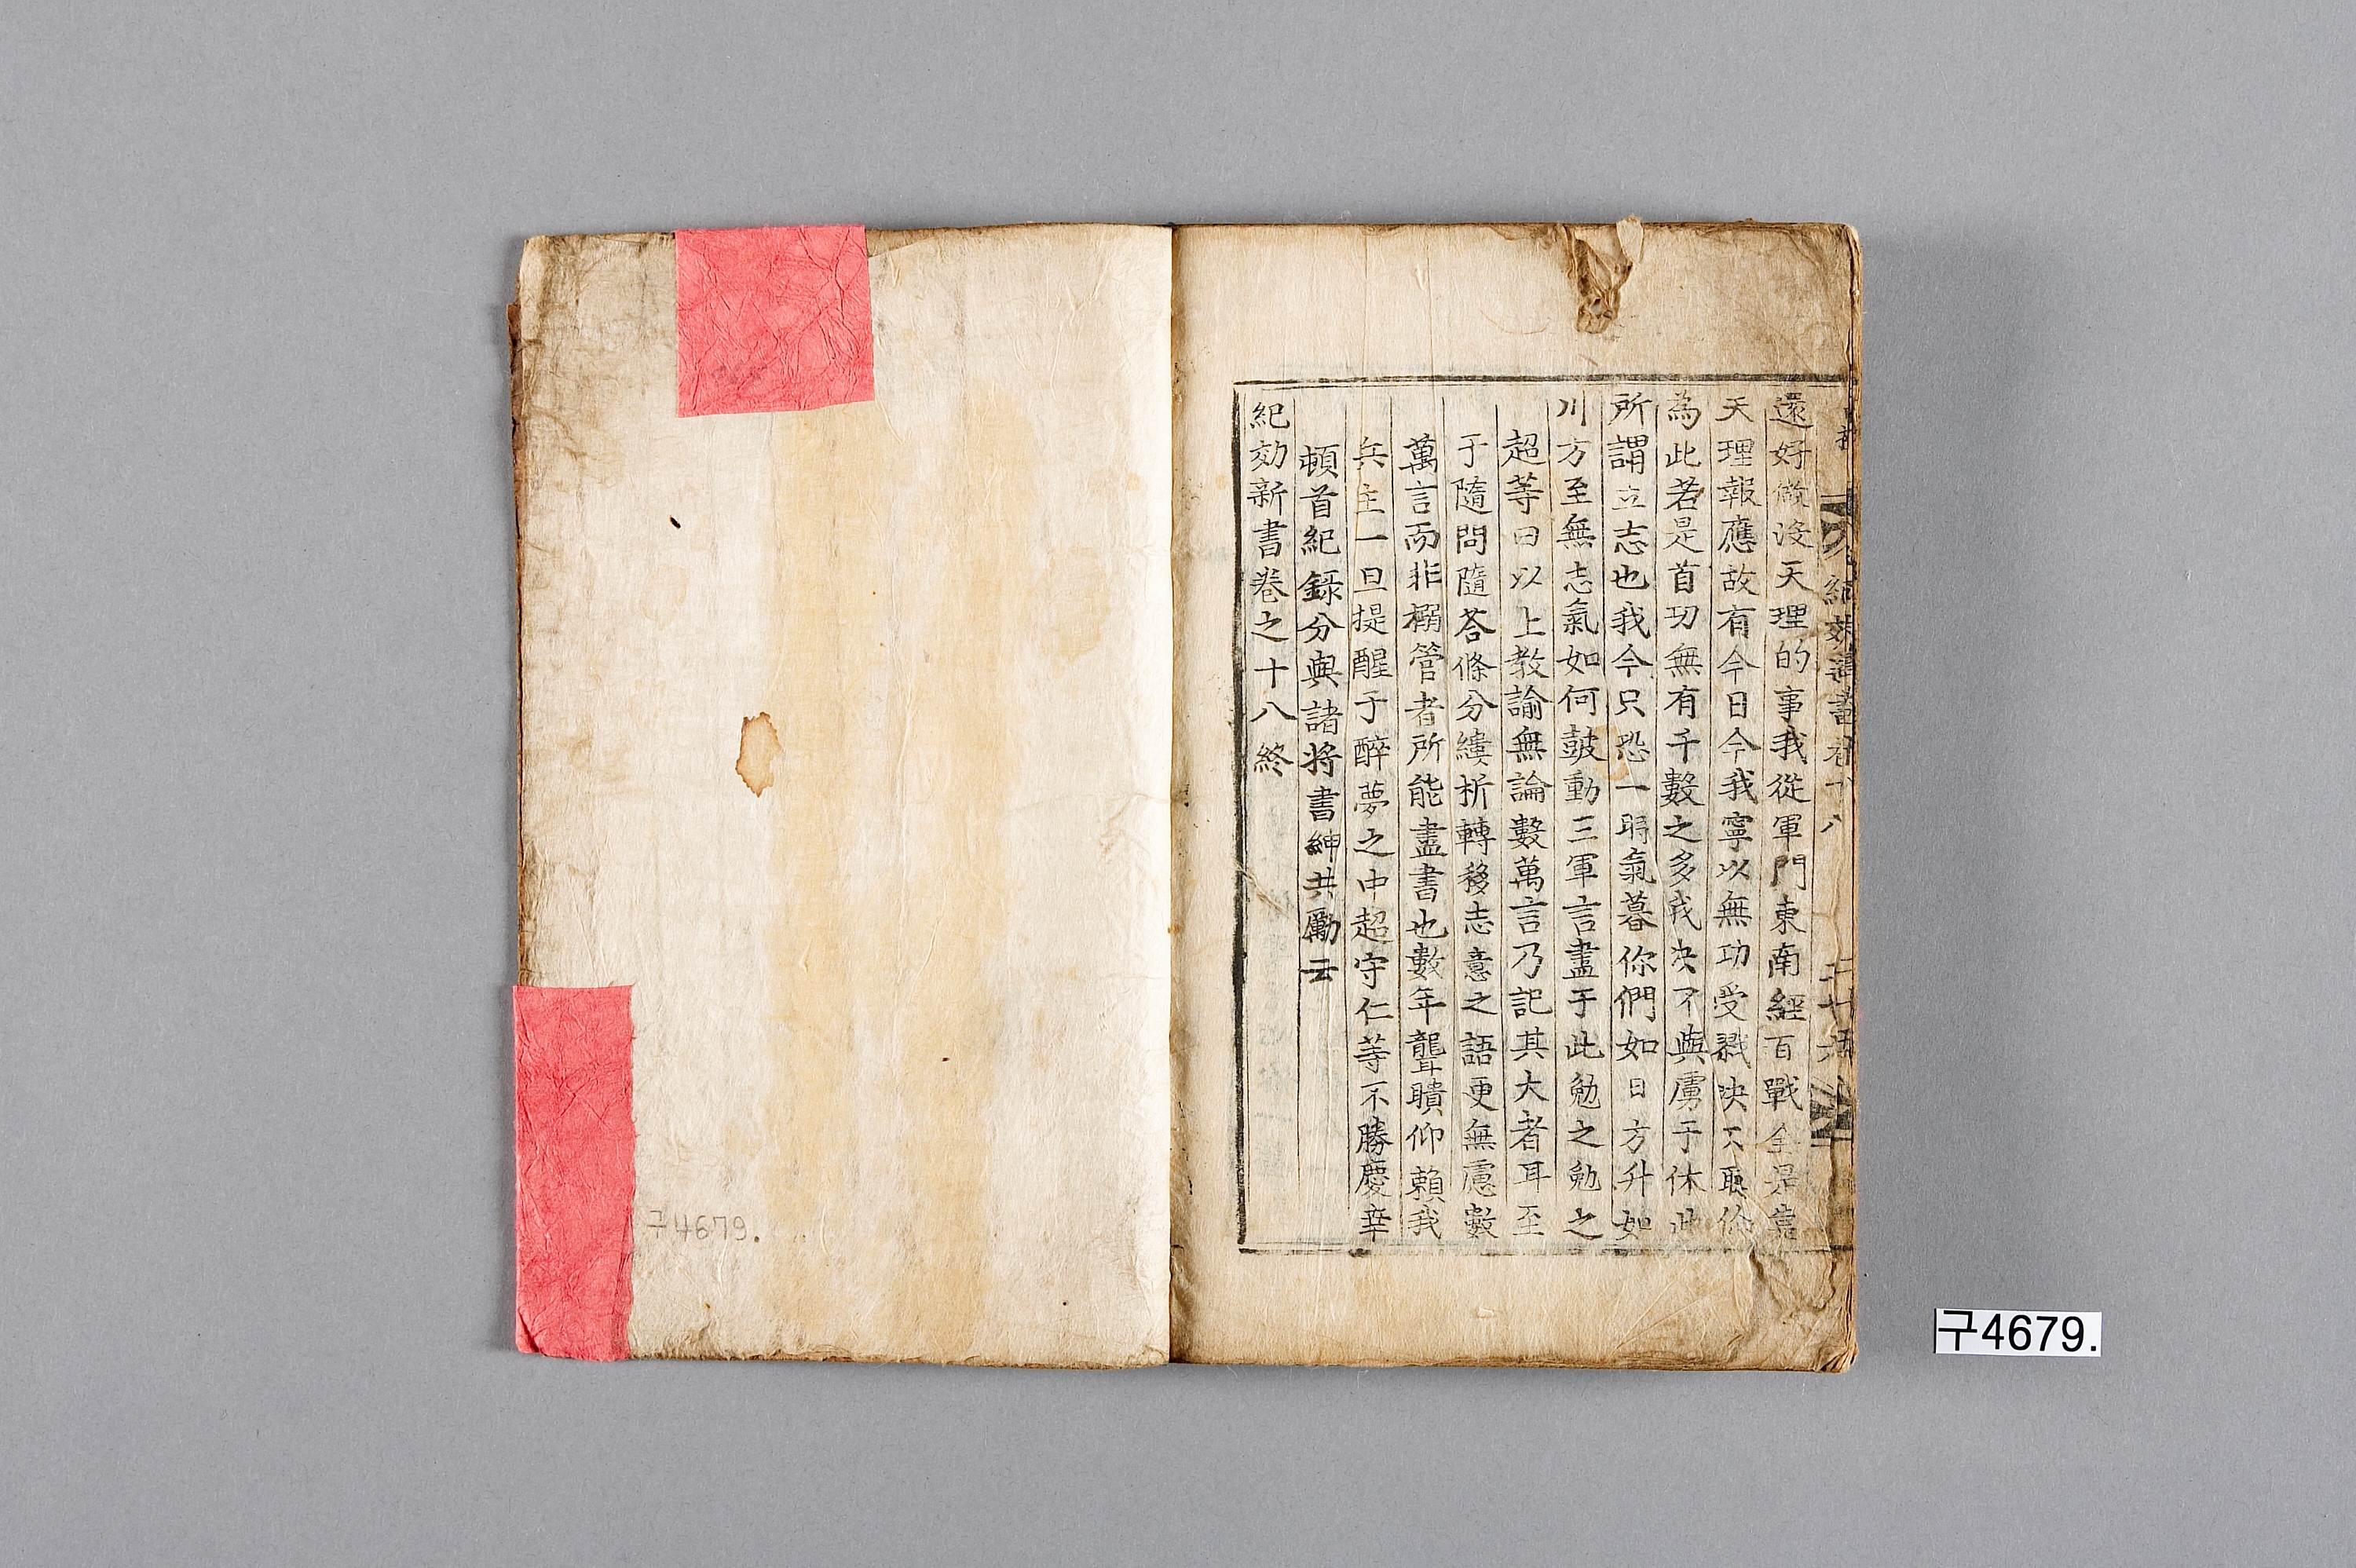 還好做没天理的事我從軍門東南經百戰全是靠
天理報應故有今日今我寧以無功受戮决不聽你
為此若是首功無有千數之多我决不與虜于休此
所謂立志也我今只恐一弱氣暮你們如日方升如
川方至無志氣如何皷動三軍言盡于此勉之勉之
超等曰以上教諭無論數萬言乃記其大者耳至
于隨問隨荅條分縷析轉移志意之語更無慮數
萬言而非槢管者所能盡書也數年聾聵仰賴我
兵主一旦提醒于醉夢之中超守仁等不勝慶幸
頓首紀錄分與諸將書紳共勵云
紀効新書卷之十八終
구4679.
구4679.